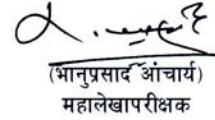 (भानुप्रसाद आचार्य)
महालेखापरीक्षक